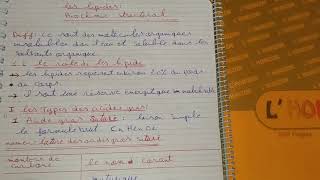 les lipides
Biochimie structural
Deff: ce sont des molécules organiques
insolubles dans l'eau et soluble dans les
solvants organique
1. le role de les lipide
les lipides représente environ 20% du poids
du corps.
Il sont une réserve énergétique mobilisable
I les types des acides gras
1 Acide gras saturé: le son simple
la formule brut Cn H2n O2
nomenclature des acides gras saturé
nombre de
carbone
le nom courant
L'HO